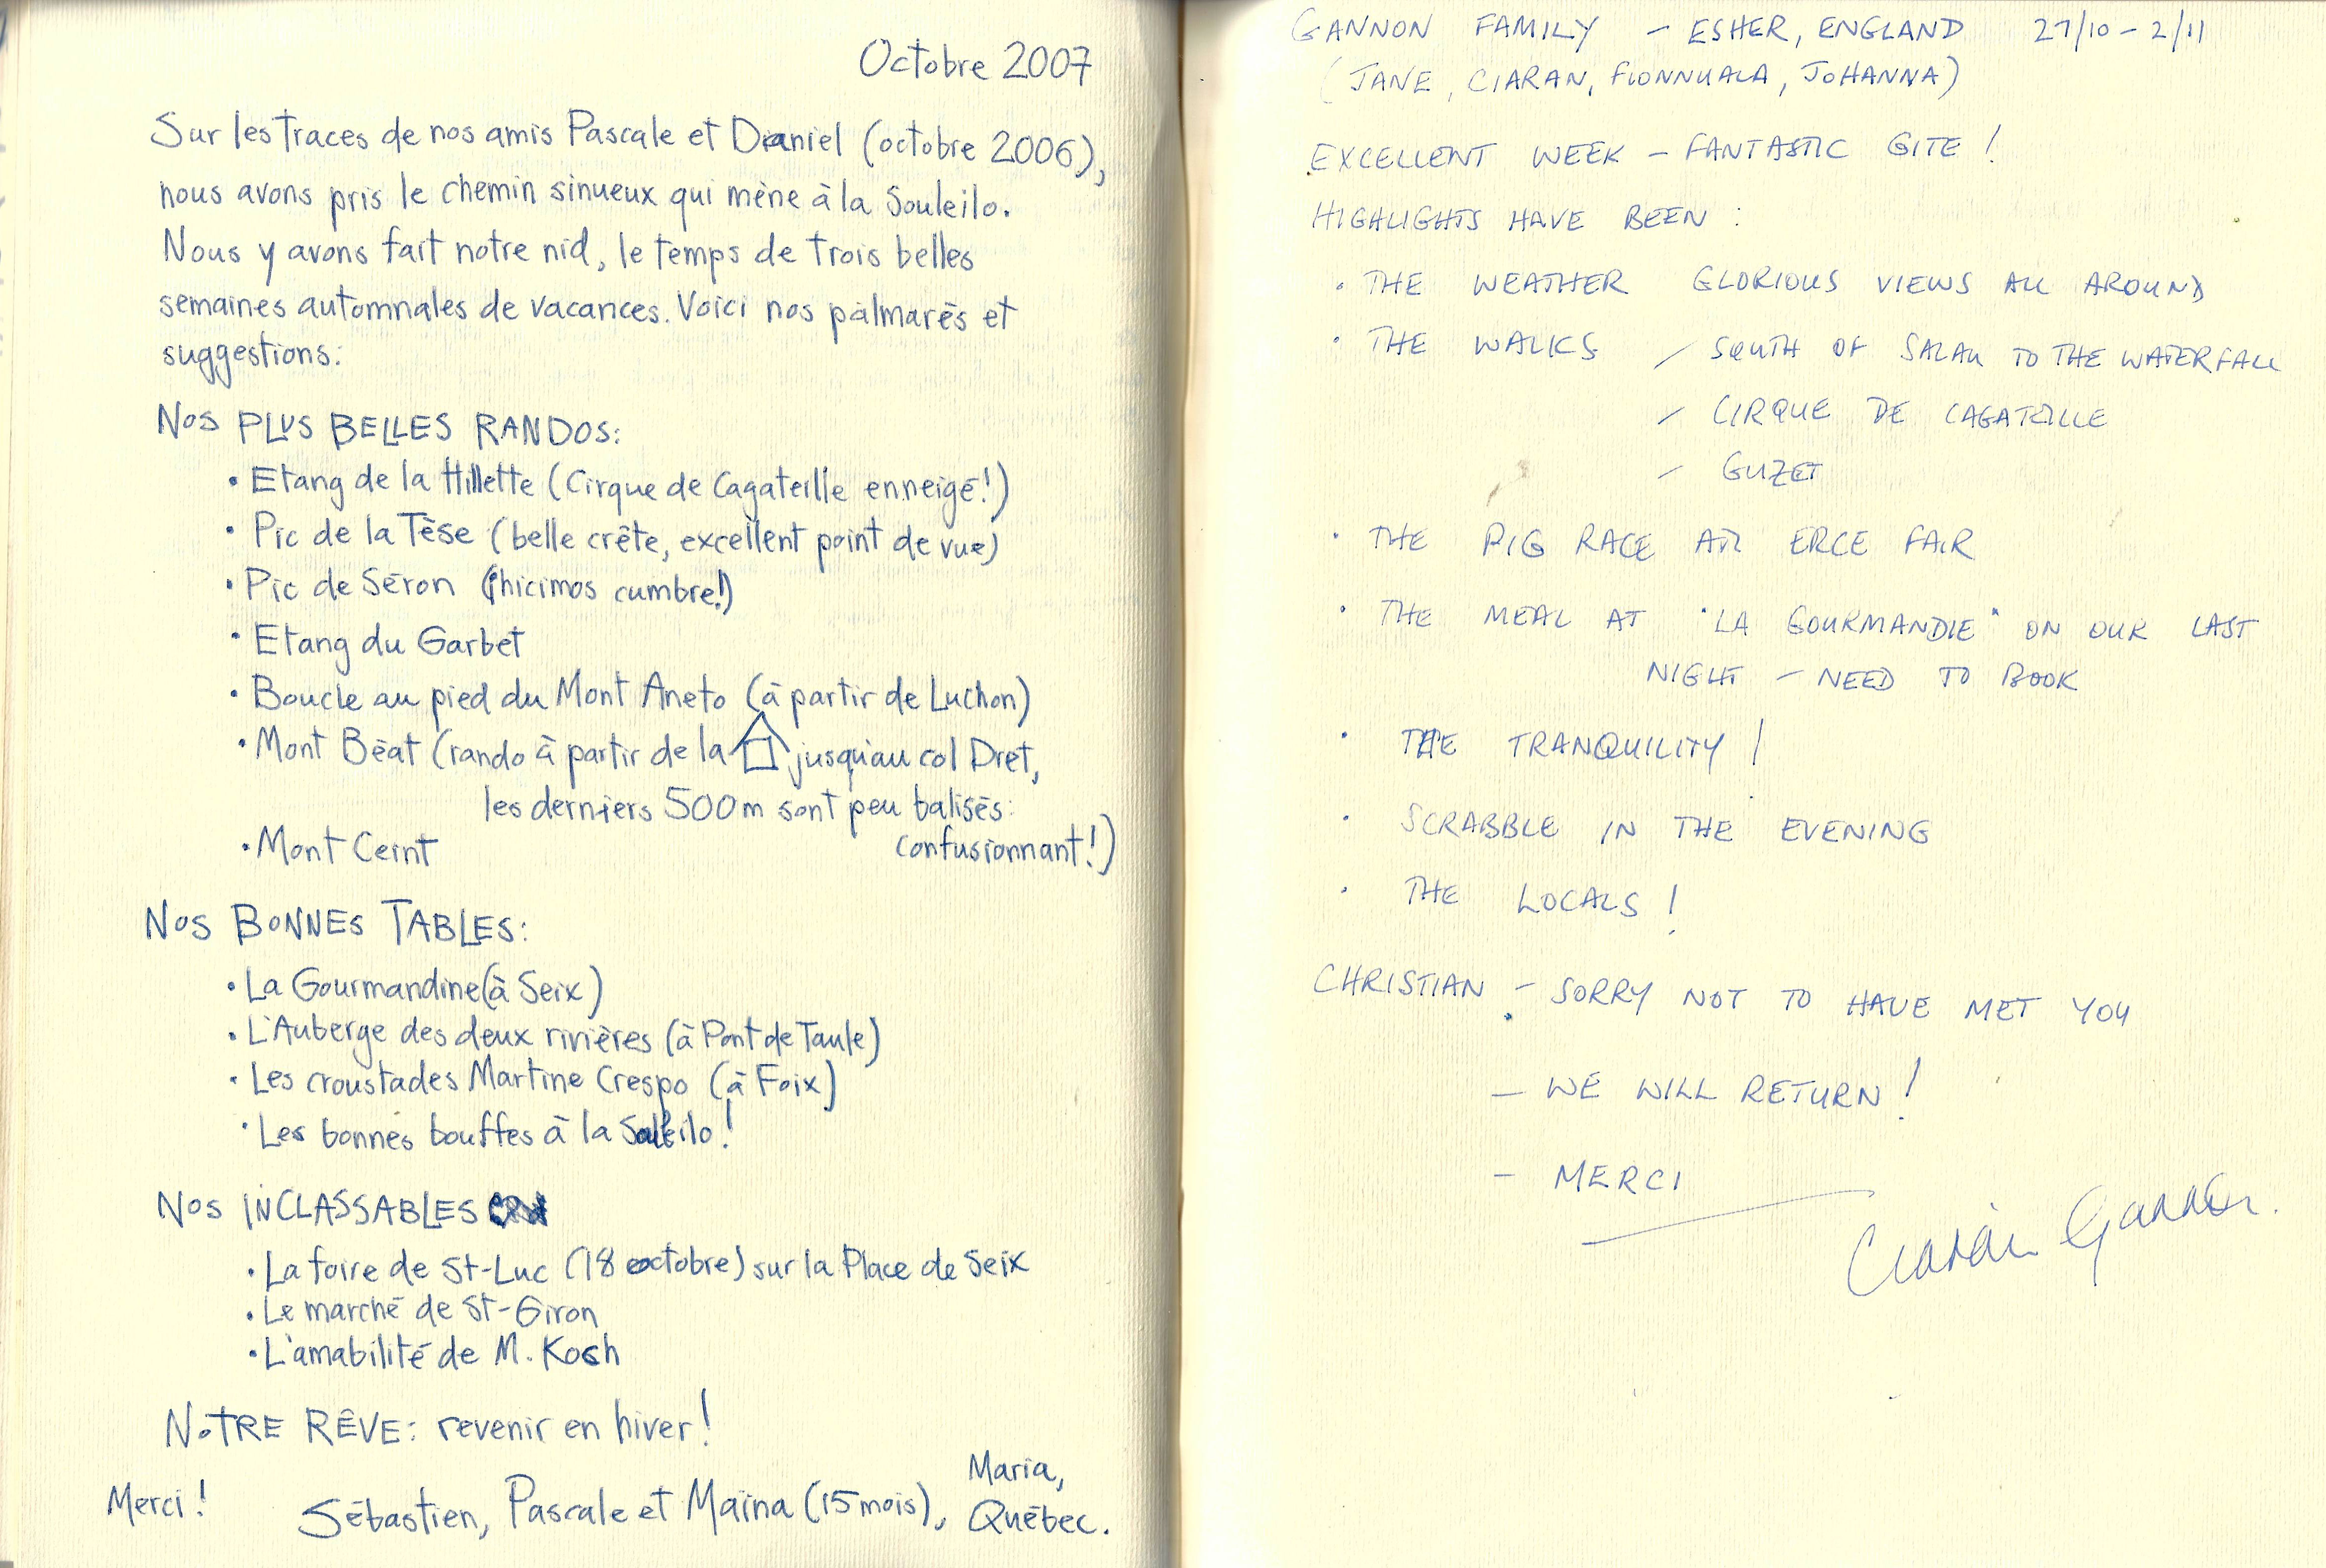 Octobre 2007
Sur les traces de nos amis Pascale et Daniel (octobre 2006),
nous avons pris le chemin sinueux qui mène à la Souleilo.
Nous y avons fait notre nid, le temps de trois belles
semaines automnales de vacances. Voici nos palmarès et
suggestions:
NOS PLUS BELLES RANDOS:
• Etang de la Hillette (Cirque de Cagateille enneigé!)
• Pic de la Tèse (belle crête, excellent point de vue)
• Pic de Séron (¡hicimos cumbre!)
• Etang du Garbet
• Boucle au pied du Mont Aneto (à partir de Luchon)
• Mont Béat (rando à partir de la jusqu'au col Dret,
les derniers 500m sont peu balisés:
confusionnant!)
• Mont Ceint
NOS BONNES TABLES:
• La Gourmandine (à Seix)
• L'Auberge des deux rivières (à Pont de Taule)
• Les croustades Martine Crespo (à Foix)
• Les bonnes bouffes à la Souleilo!
NOS INCLASSABLES
• La foire de St-Luc (18 octobre) sur la Place de Seix
• Le marché de St-Giron
• L'amabilité de M. Kosh
NOTRE RÊVE: revenir en hiver!
Merci! Sébastien, Pascale et Maïna (15 mois), Maria,
Québec.
GANNON FAMILY - ESHER, ENGLAND 27/10 - 2/11
(JANE, CIARAN, FIONNUALA, JOHANNA)
EXCELLENT WEEK - FANTASTIC GITE!
HIGHLIGHTS HAVE BEEN:
• THE WEATHER GLORIOUS VIEWS ALL AROUND
• THE WALKS - SOUTH OF SALAU TO THE WATERFALL
- CIRQUE DE CAGATEILLE
- GUZET
• THE PIG RACE AT ERCE FAIR
• THE MEAL AT "LA GOURMANDIE" ON OUR LAST
NIGHT - NEED TO BOOK
• THE TRANQUILITY!
• SCRABBLE IN THE EVENING
• THE LOCALS!
CHRISTIAN - SORRY NOT TO HAVE MET YOU
- WE WILL RETURN!
- MERCI
Ciarán Gannon.